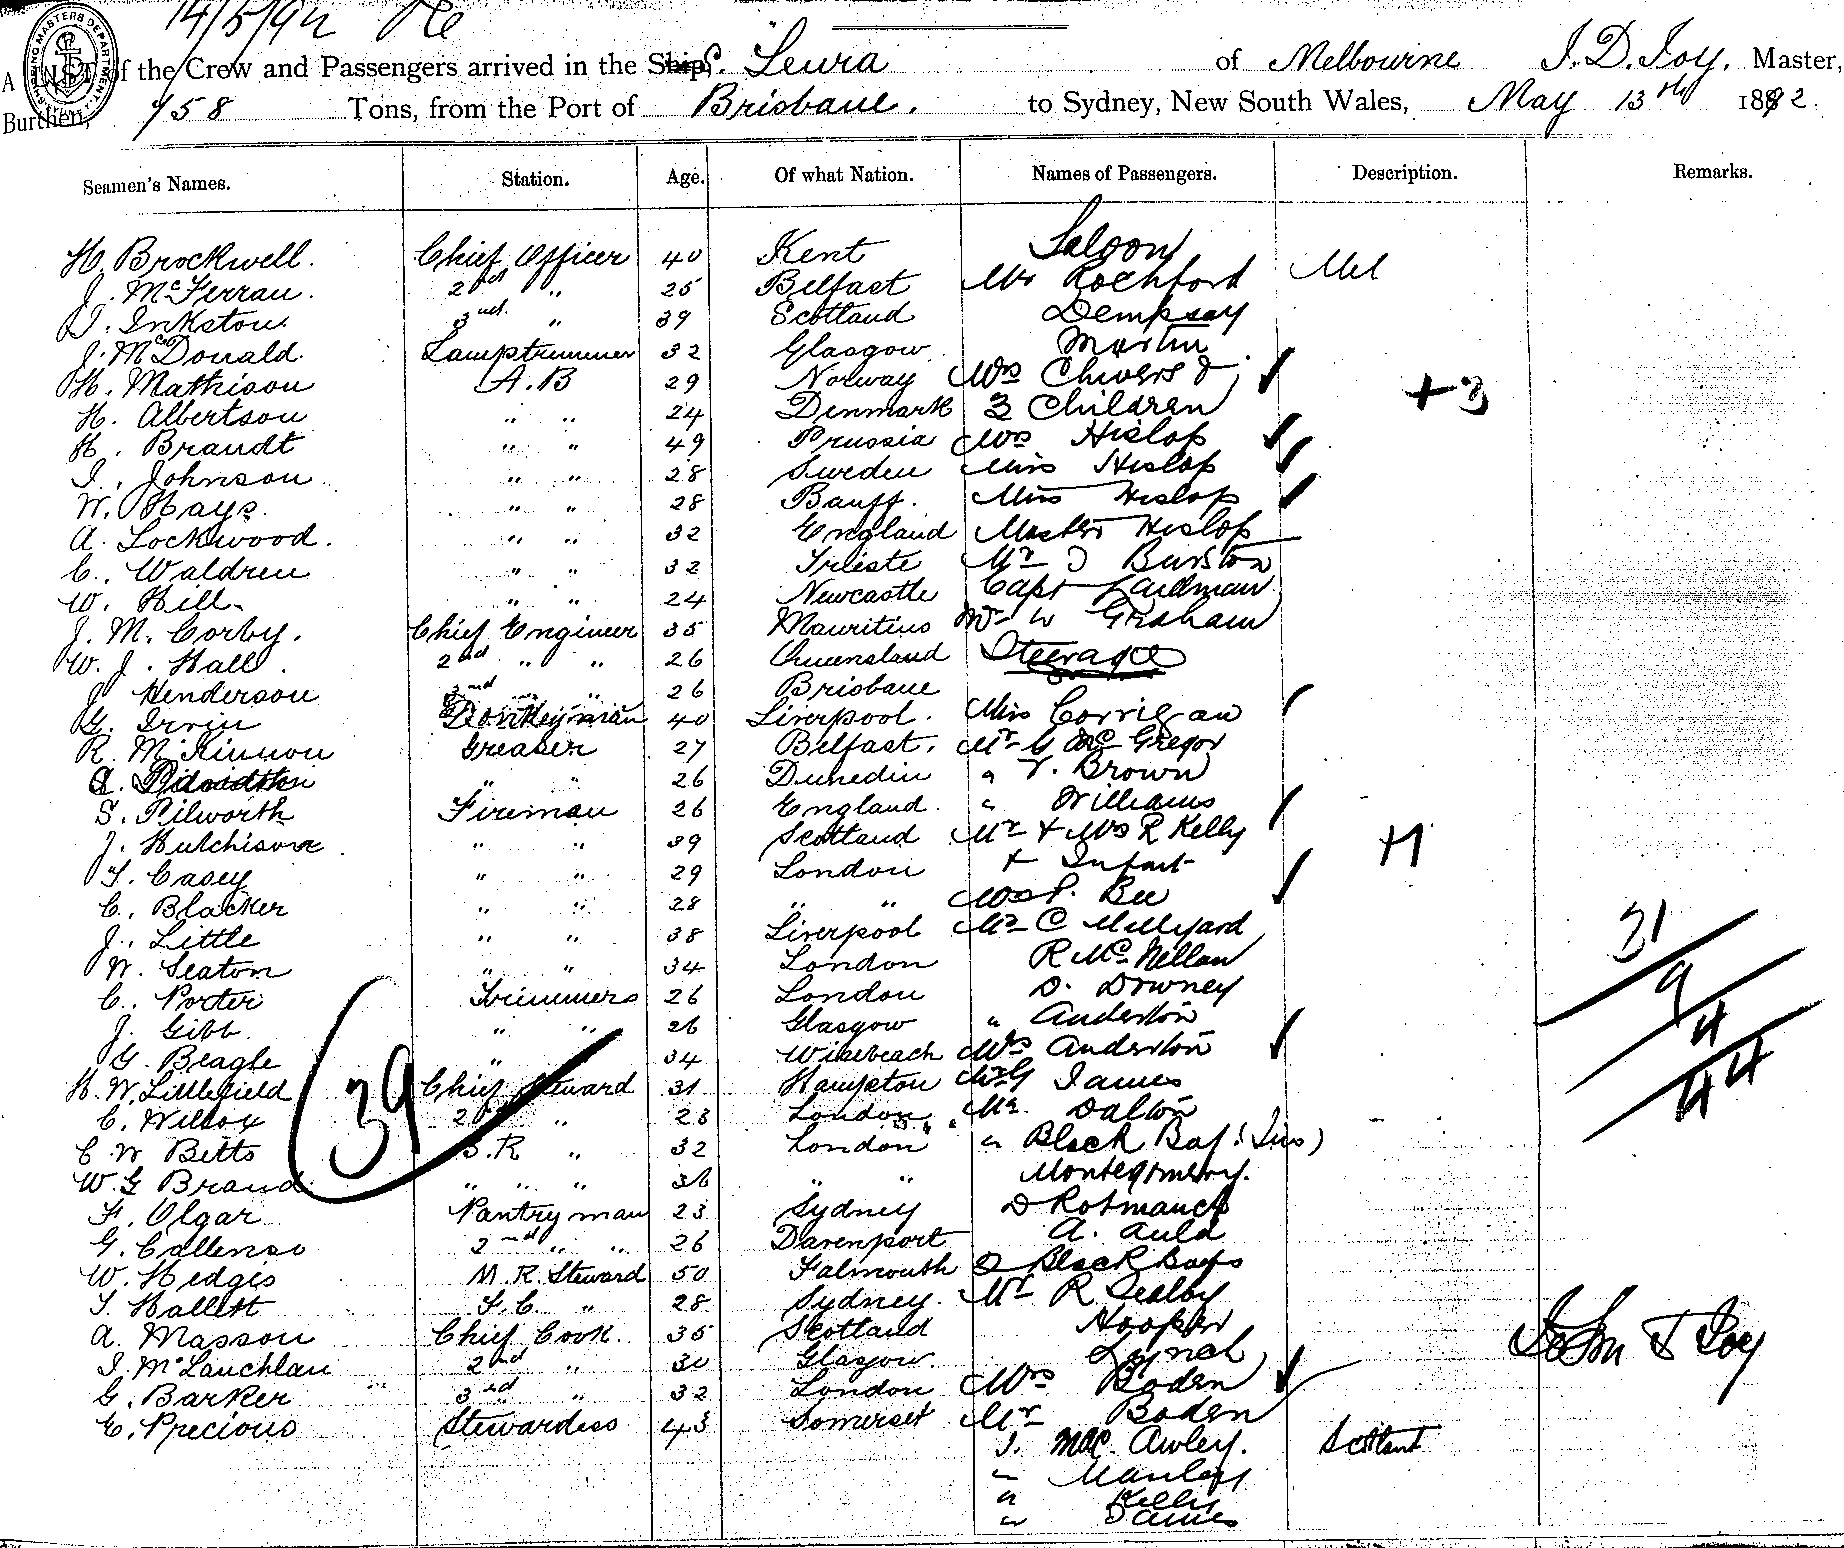 14/5/92
SHIPPING MASTERS DEPARTMENT
A LIST of the Crew and Passengers arrived in the Ship S.S. Leura of Melbourne J. D. Joy, Master,
Burthen, 958 Tons, from the Port of Brisbane. to Sydney, New South Wales, May 13th 1892.
Seamen's Names. Station. Age. Of what Nation. Names of Passengers. Description. Remarks.
Saloon
H. Brockwell. Chief Officer 40 Kent
J. McFerran. 2nd " 25 Belfast Mr Rochford Mel
T. Inkston. 3rd. " 39 Scotland Dempsay
J. McDonald. Lamptrimmer 32 Glasgow Martin
H. Mathison A.B 29 Norway Mrs Chivers &
H. Albertson " " 24 Denmark 3 Children +3
H. Brandt " " 49 Prussia Mrs Hislop
I. Johnson " " 28 Sweden Miss Hislop
W. Hays. " " 28 Banff. Miss Hislop
A. Lockwood. " " 32 England Master Hislop
C. Waldren " " 32 Trieste Mr J Burston
W. Hill. " " 24 Newcastle Capt
J. M. Corby. Chief Engineer 35 Mauritius Mr W Graham
W. J. Hall. 2nd " " 26 Queensland Steerage
J Henderson 3rd " " 26 Brisbane
G. Irvin Donkeyman 40 Liverpool. Miss Corrigan
R. McKinnon Greaser 27 Belfast. Mr G McGregor
A. " " 26 Dunedin " T. Brown
S. Pilworth Fireman 26 England. " Williams
J. Hutchisone " " 39 Scotland Mr + Mrs R Kelly
T. Casey " " 29 London + Infant +1
C. Blacker " " 28 " " Mrs P. Bee
J. Little " " 38 Liverpool Mr C Millyard
W. Seaton " " 34 London R McNellan
C. Porter Trimmers 26 London D. Downey
J. Gibb. " " 26 Glasgow " Anderton
G. Beagle " 34 Wisebeach Mrs Anderton
H. W. Littlefield Chief Steward 31 Hampton Mr G James
C. Willcox 2nd " 28 London Mr. Dalton
C W Betts S.R " 32 London " Black Boy
W. G Brand " " " 36 " " Montegomery.
F. Olgar Pantryman 23 Sydney D Rotmanch
G. Callenso 2nd " " 26 Davenport A. Auld
W. Hedgis M.R. Steward 50 Falmouth 2 Black Boys
T. Hallett F.C. " 28 Sydney. Mr R Sealby
A. Masson Chief Cook. 35 Scotland Hooper
J. McLauchlan 2nd " 30 Glasgow. Lynch
G. Barker 3rd " 32 London Mrs Boden
E. Precious Stewardess 43 Somerset Mr Boden
J. MacAwley. Scotland
" Manley
" Kelly
" James
39
31
9
4
44
John T Joy